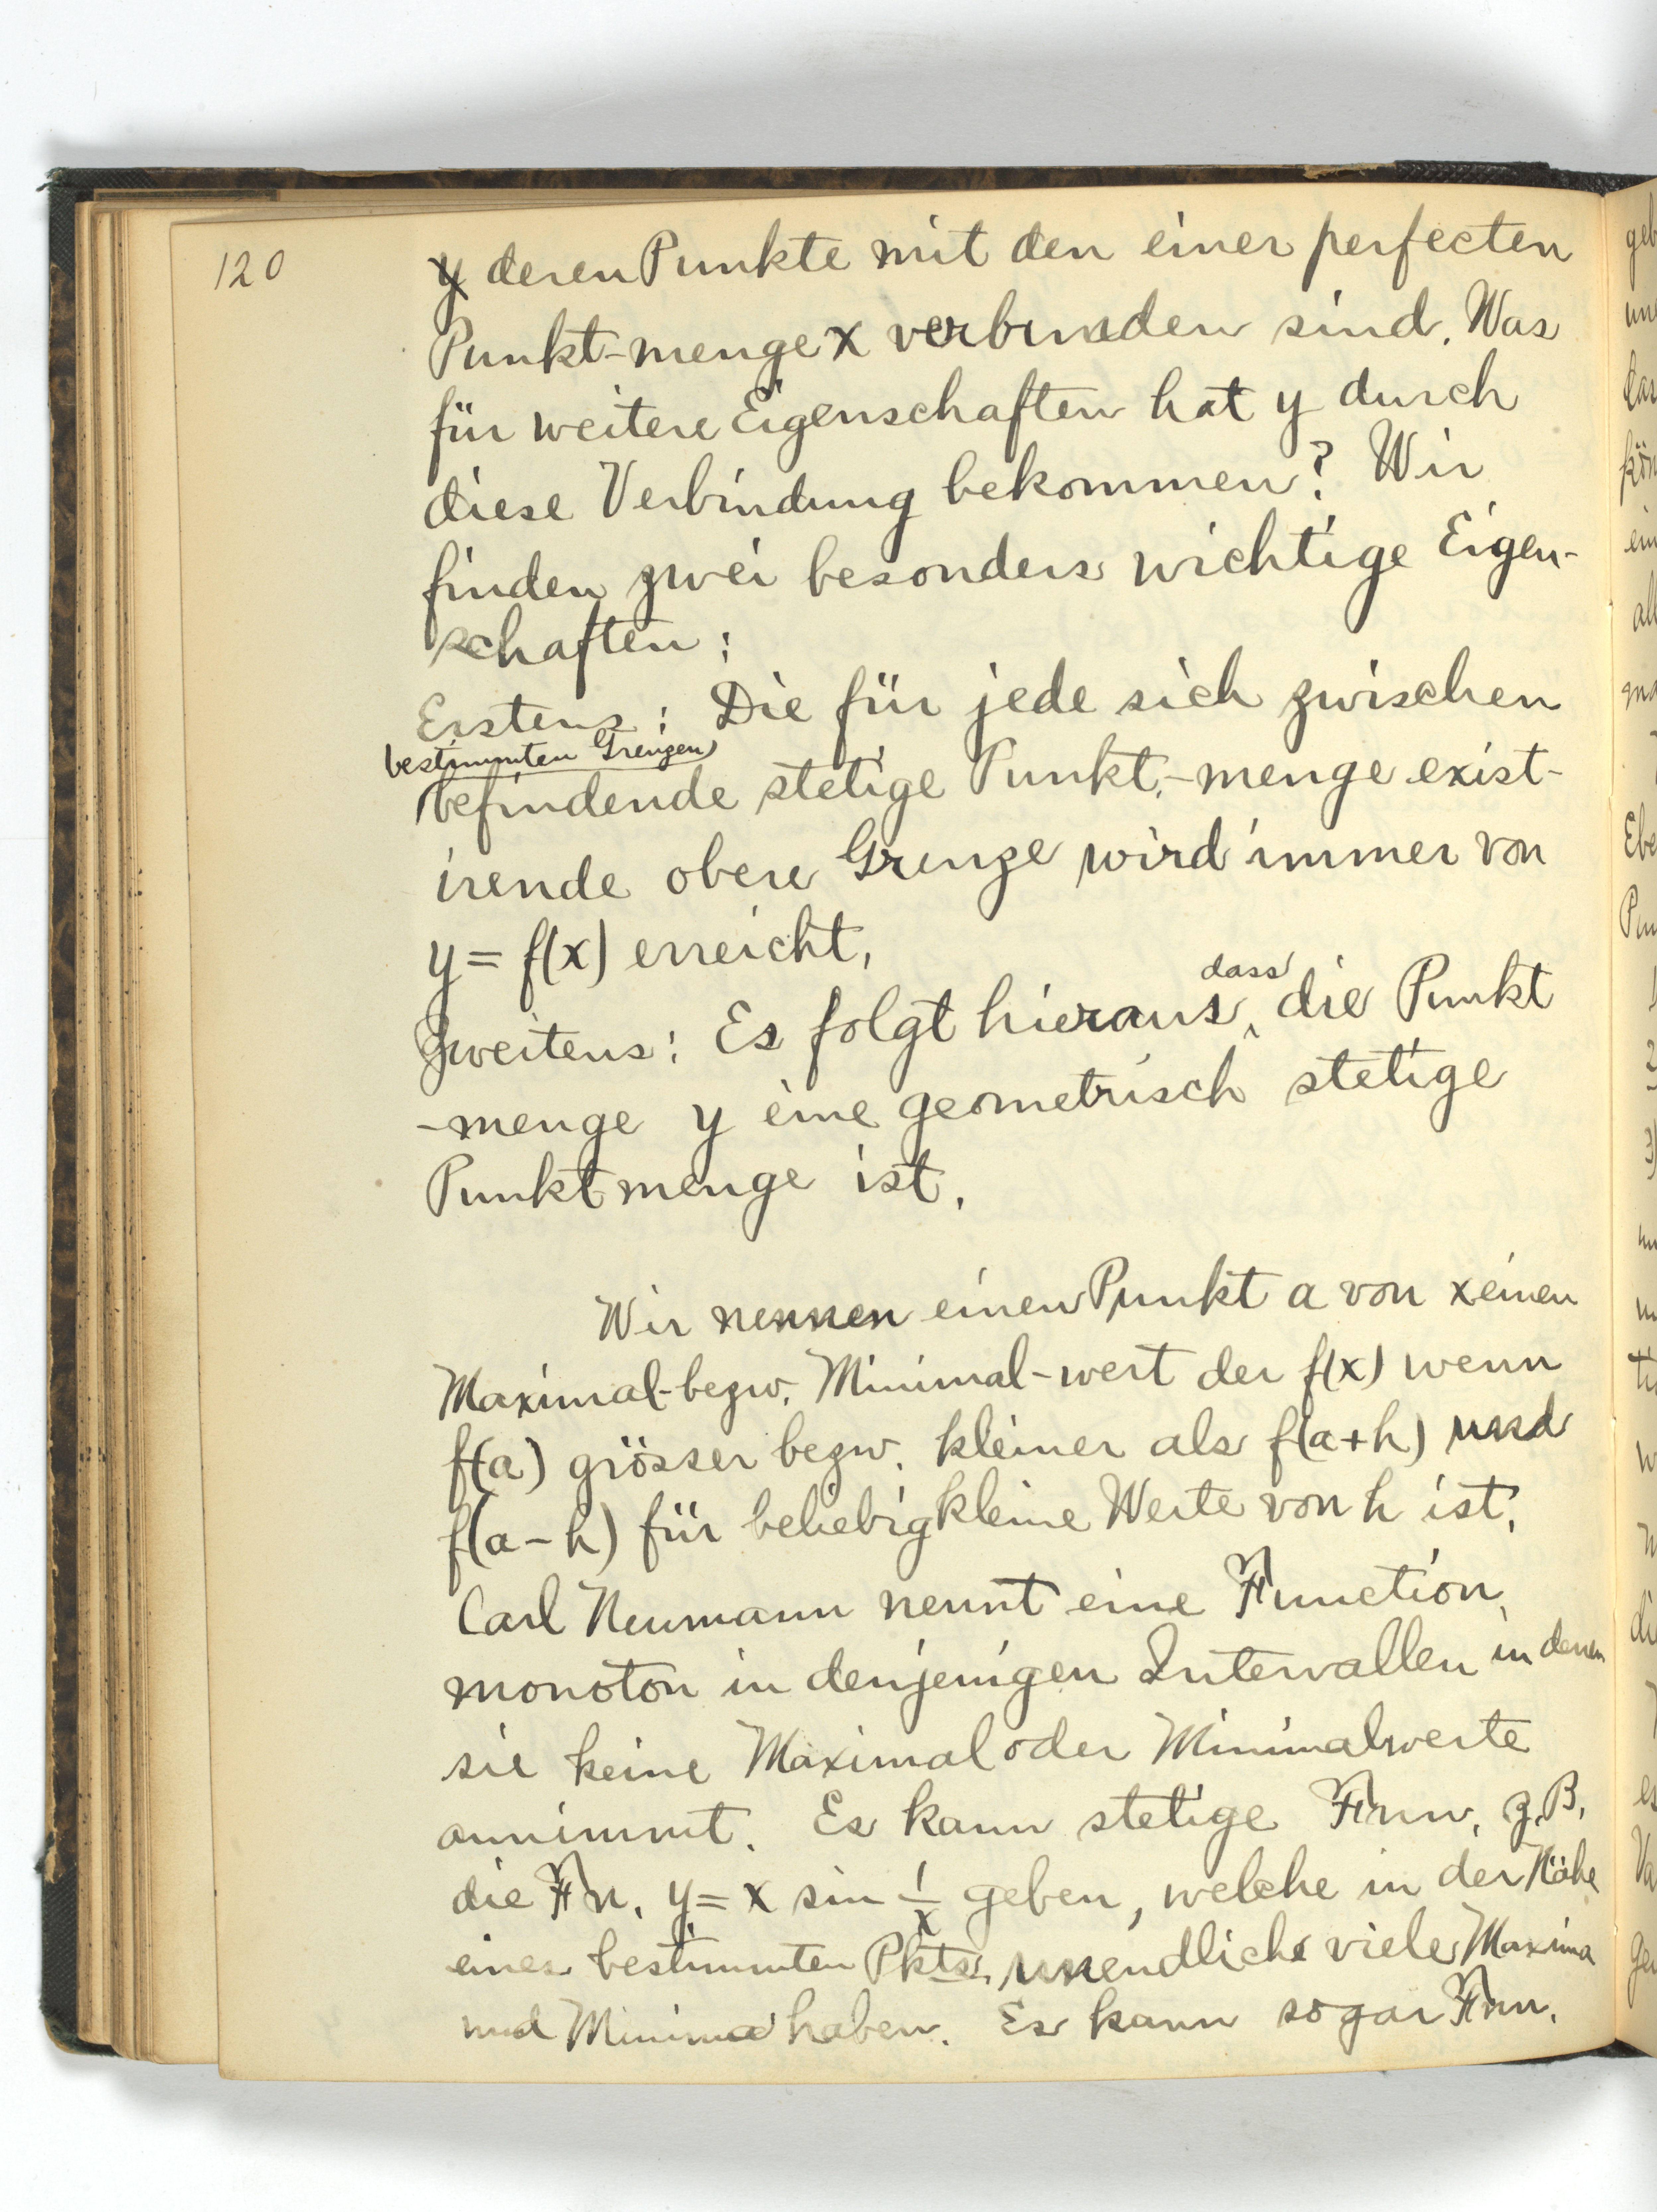 120
y deren Punkte mit den einer perfecten
Punkt-menge x verbunden sind. Was
für weitere Eigenschaften hat y durch
diese Verbindung bekommen? Wir
finden zwei besonders wichtige Eigen-
schaften:
Erstens: Die für jede sich zwischen
bestimmten Grenzen
befindende stetige Punkt-menge exist-
irende obere Grenze wird immer von
y = f(x) erreicht.
Zweitens: Es folgt hieraus, dass die Punkt
-menge y eine geometrisch stetige
Punktmenge ist.
Wir nennen einen Punkt a von x einen
Maximal-bezw. Minimal-wert der f(x) wenn
f(a) grösser bezw. kleiner als f(a+h) und
f(a-h) für beliebig kleine Werte von h ist.
Carl Neumann nennt eine Function
monoton in denjenigen Intervallen in denen
sie keine Maximal oder Minimalwerte
annimmt. Es kann stetige Fnn. z.B.
die Fn. y = x sin 1/x geben, welche in der Nähe
eines bestimmten Pkts. unendliche viele Maxima
und Minima haben. Es kann sogar Fnn.